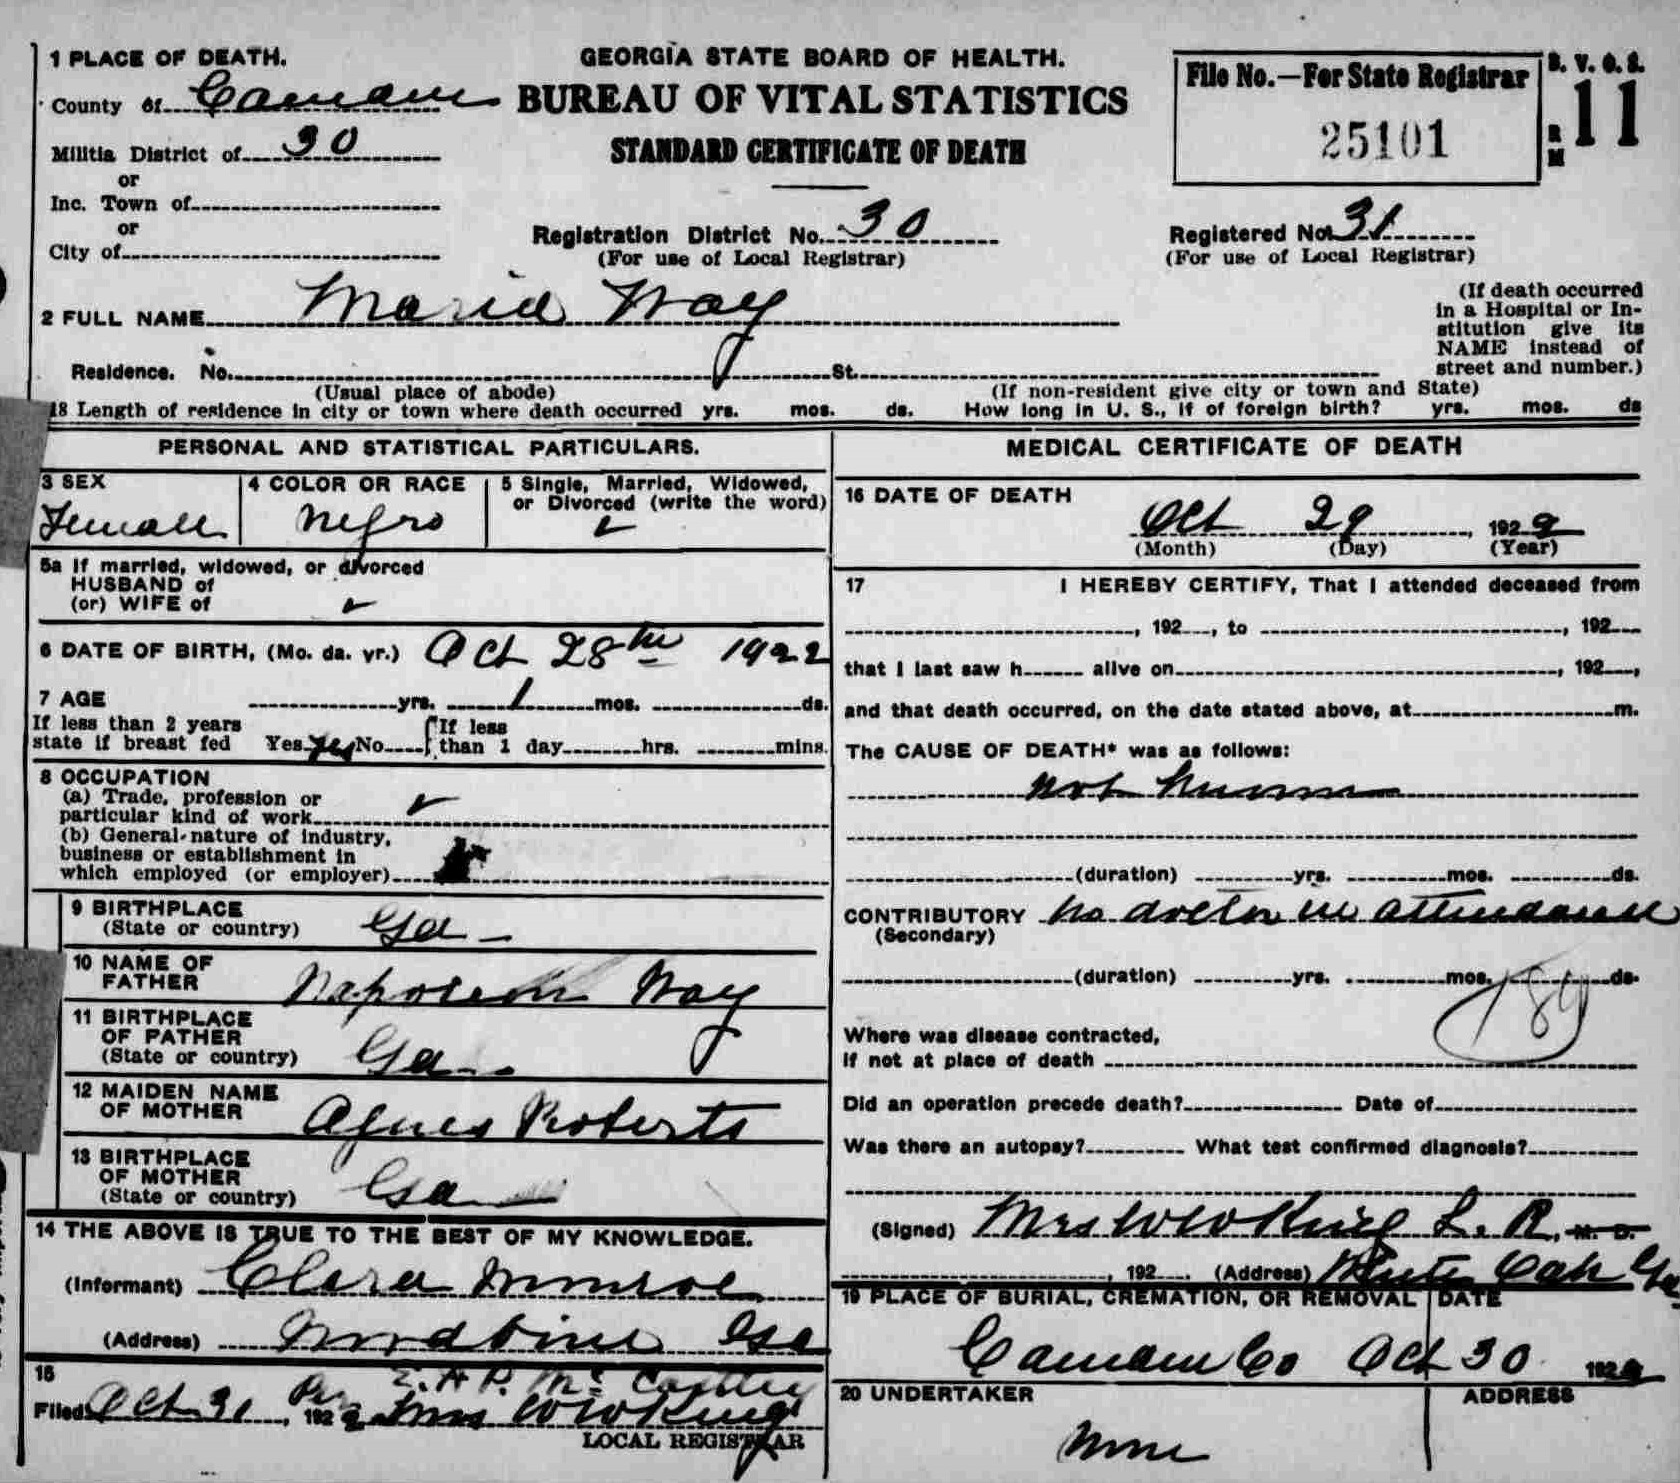 1 PLACE OF DEATH.
County of Camden
Militia District of 30
or
Inc. Town of
or
City of
GEORGIA STATE BOARD OF HEALTH.
BUREAU OF VITAL STATISTICS
STANDARD CERTIFICATE OF DEATH
Registration District No. 30
(For use of Local Registrar)
File No.—For State Registrar
25101
B. V. O. S.
R M 11
Registered No. 31
(For use of Local Registrar)
2 FULL NAME Maria Way
(If death occurred
in a Hospital or In-
stitution give its
NAME instead of
street and number.)
Residence. No. St.
(Usual place of abode) (If non-resident give city or town and State)
18 Length of residence in city or town where death occurred yrs. mos. ds. How long in U. S., if of foreign birth? yrs. mos. ds
PERSONAL AND STATISTICAL PARTICULARS.
3 SEX
Female
4 COLOR OR RACE
Negro
5 Single, Married, Widowed,
or Divorced (write the word)
5a If married, widowed, or divorced
HUSBAND of
(or) WIFE of
6 DATE OF BIRTH, (Mo. da. yr.) Oct 28th 1922
7 AGE yrs. 1 mos. ds.
If less than 2 years
state if breast fed Yes yes No
If less
than 1 day hrs. mins.
8 OCCUPATION
(a) Trade, profession or
particular kind of work
(b) General nature of industry,
business or establishment in
which employed (or employer)
9 BIRTHPLACE
(State or country) Ga
10 NAME OF
FATHER Napoleon Way
11 BIRTHPLACE
OF FATHER
(State or country) Ga
12 MAIDEN NAME
OF MOTHER Agnes Roberts
13 BIRTHPLACE
OF MOTHER
(State or country) Ga
14 THE ABOVE IS TRUE TO THE BEST OF MY KNOWLEDGE.
(Informant) Clara Munroe
(Address) Woodbine Ga
15
Filed Oct 31, 1922 Per Mrs W W King
LOCAL REGISTRAR
MEDICAL CERTIFICATE OF DEATH
16 DATE OF DEATH
Oct 29, 1922
(Month) (Day) (Year)
17 I HEREBY CERTIFY, That I attended deceased from
, 192 , to , 192
that I last saw h alive on , 192 ,
and that death occurred, on the date stated above, at m.
The CAUSE OF DEATH* was as follows:
not known
(duration) yrs. mos. ds.
CONTRIBUTORY no doctor in attendance
(Secondary)
(duration) yrs. mos. ds.
189
Where was disease contracted,
if not at place of death
Did an operation precede death? Date of
Was there an autopsy? What test confirmed diagnosis?
(Signed) Mrs W W King L. R. M. D.
, 192 . (Address) White Oak Ga
19 PLACE OF BURIAL, CREMATION, OR REMOVAL DATE
Camden Co Oct 30 1922
20 UNDERTAKER ADDRESS
None